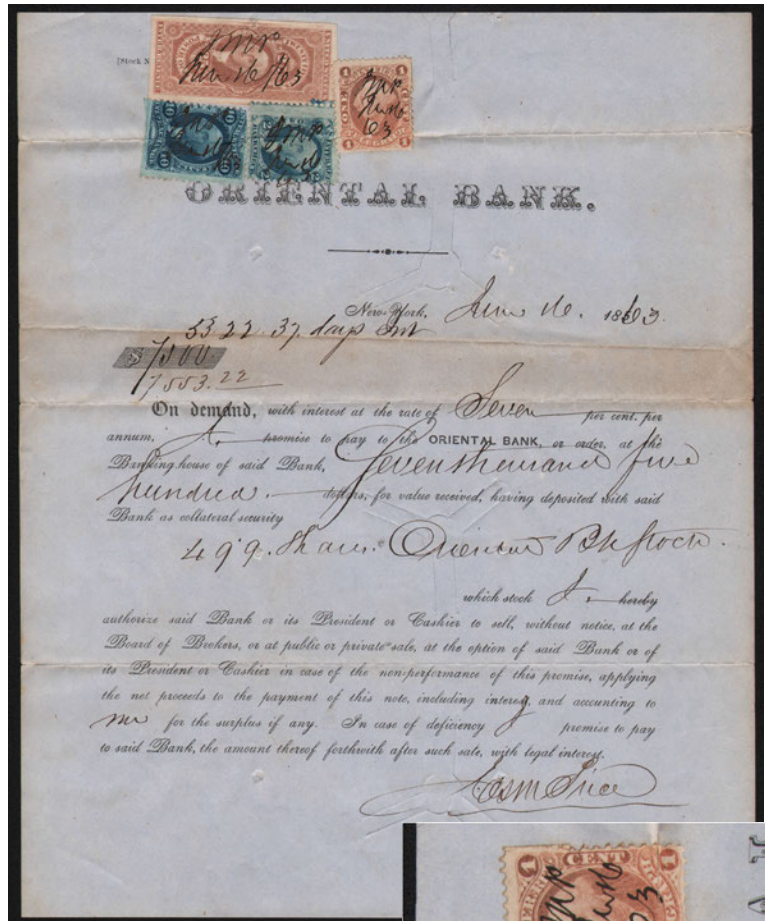 [Stock N
J M P
June 16/63
J M P
June 16
63
ORIENTAL BANK.
New-York, June 16. 1863.
53.22. 37. days Int
$ 7500
7553.22
On demand, with interest at the rate of Seven per cent. per
annum, I promise to pay to the ORIENTAL BANK, or order, at the
Banking house of said Bank, Seven thousand five
hundred. dollars, for value received, having deposited with said
Bank as collateral security
499. Shares. Oriental Bk Stock.
which stock I hereby
authorize said Bank or its President or Cashier to sell, without notice, at the
Board of Brokers, or at public or private sale, at the option of said Bank or of
its President or Cashier in case of the non-performance of this promise, applying
the net proceeds to the payment of this note, including interest, and accounting to
me for the surplus if any. In case of deficiency I promise to pay
to said Bank, the amount thereof forthwith after such sale, with legal interest.
Price
1 CENT 1